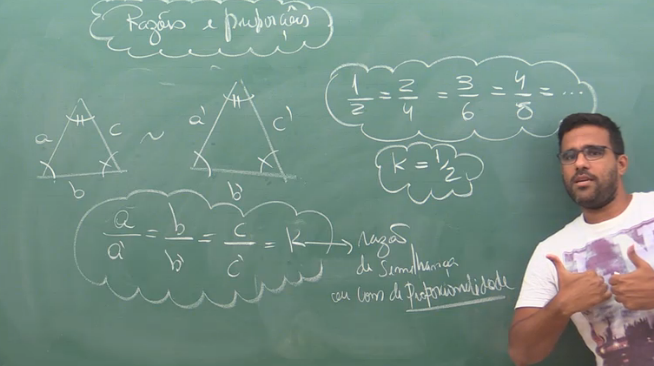 Razões e proporções
1/2 = 2/4 = 3/6 = 4/8 = ...
a c ~ a' c'
b b'
K = 1/2
a/a' = b/b' = c/c' = K → razão
de Semelhança
ou cons de Proporcionalidade